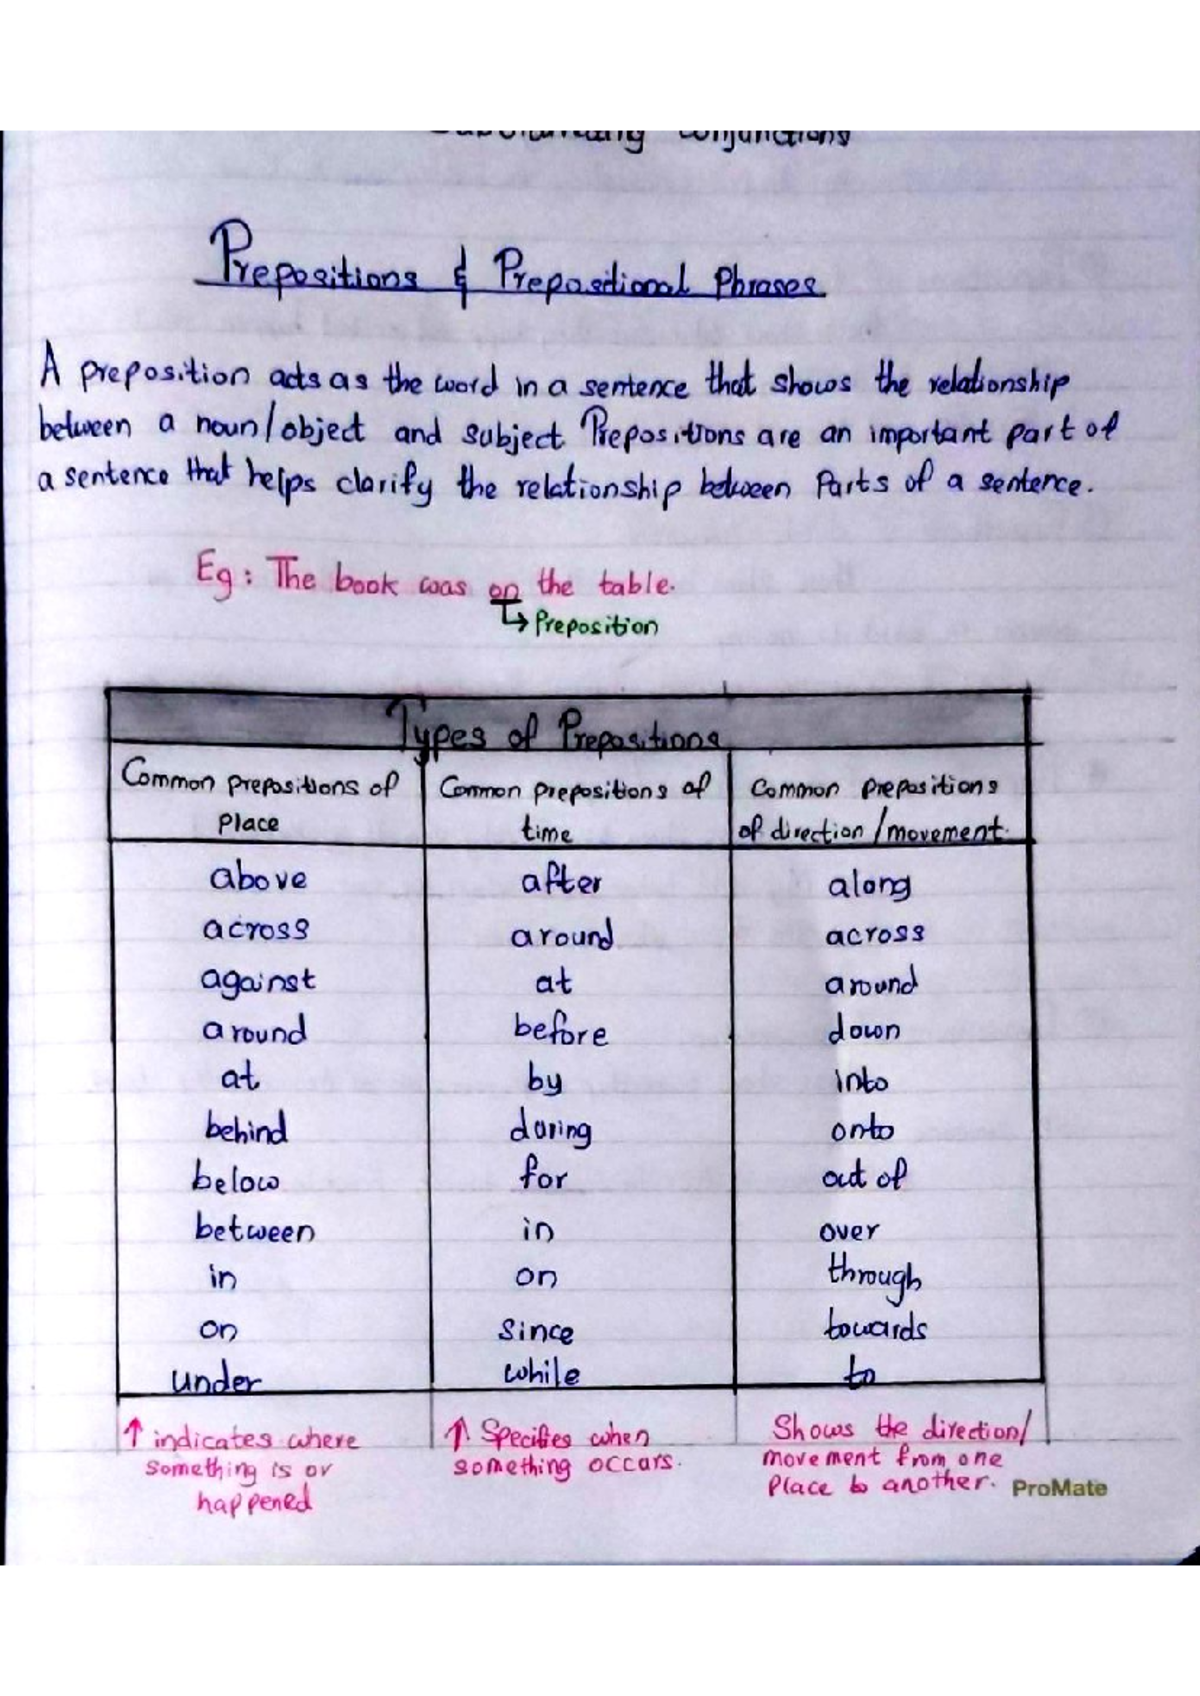 Subordinating Conjunctions
Prepositions & Prepositional Phrases
A preposition acts as the word in a sentence that shows the relationship
between a noun/object and subject. Prepositions are an important part of
a sentence that helps clarify the relationship between Parts of a sentence.
Eg : The book was on the table.
↳ Preposition
Types of Prepositions
Common prepositions of place
Common prepositions of time
Common prepositions of direction/movement.
above after along
across around across
against at around
around before down
at by into
behind during onto
below for out of
between in over
in on through
on since towards
under while to
↑ indicates where
something is or
happened
↑ Specifies when
something occurs.
Shows the direction/
movement from one
Place to another.
ProMate